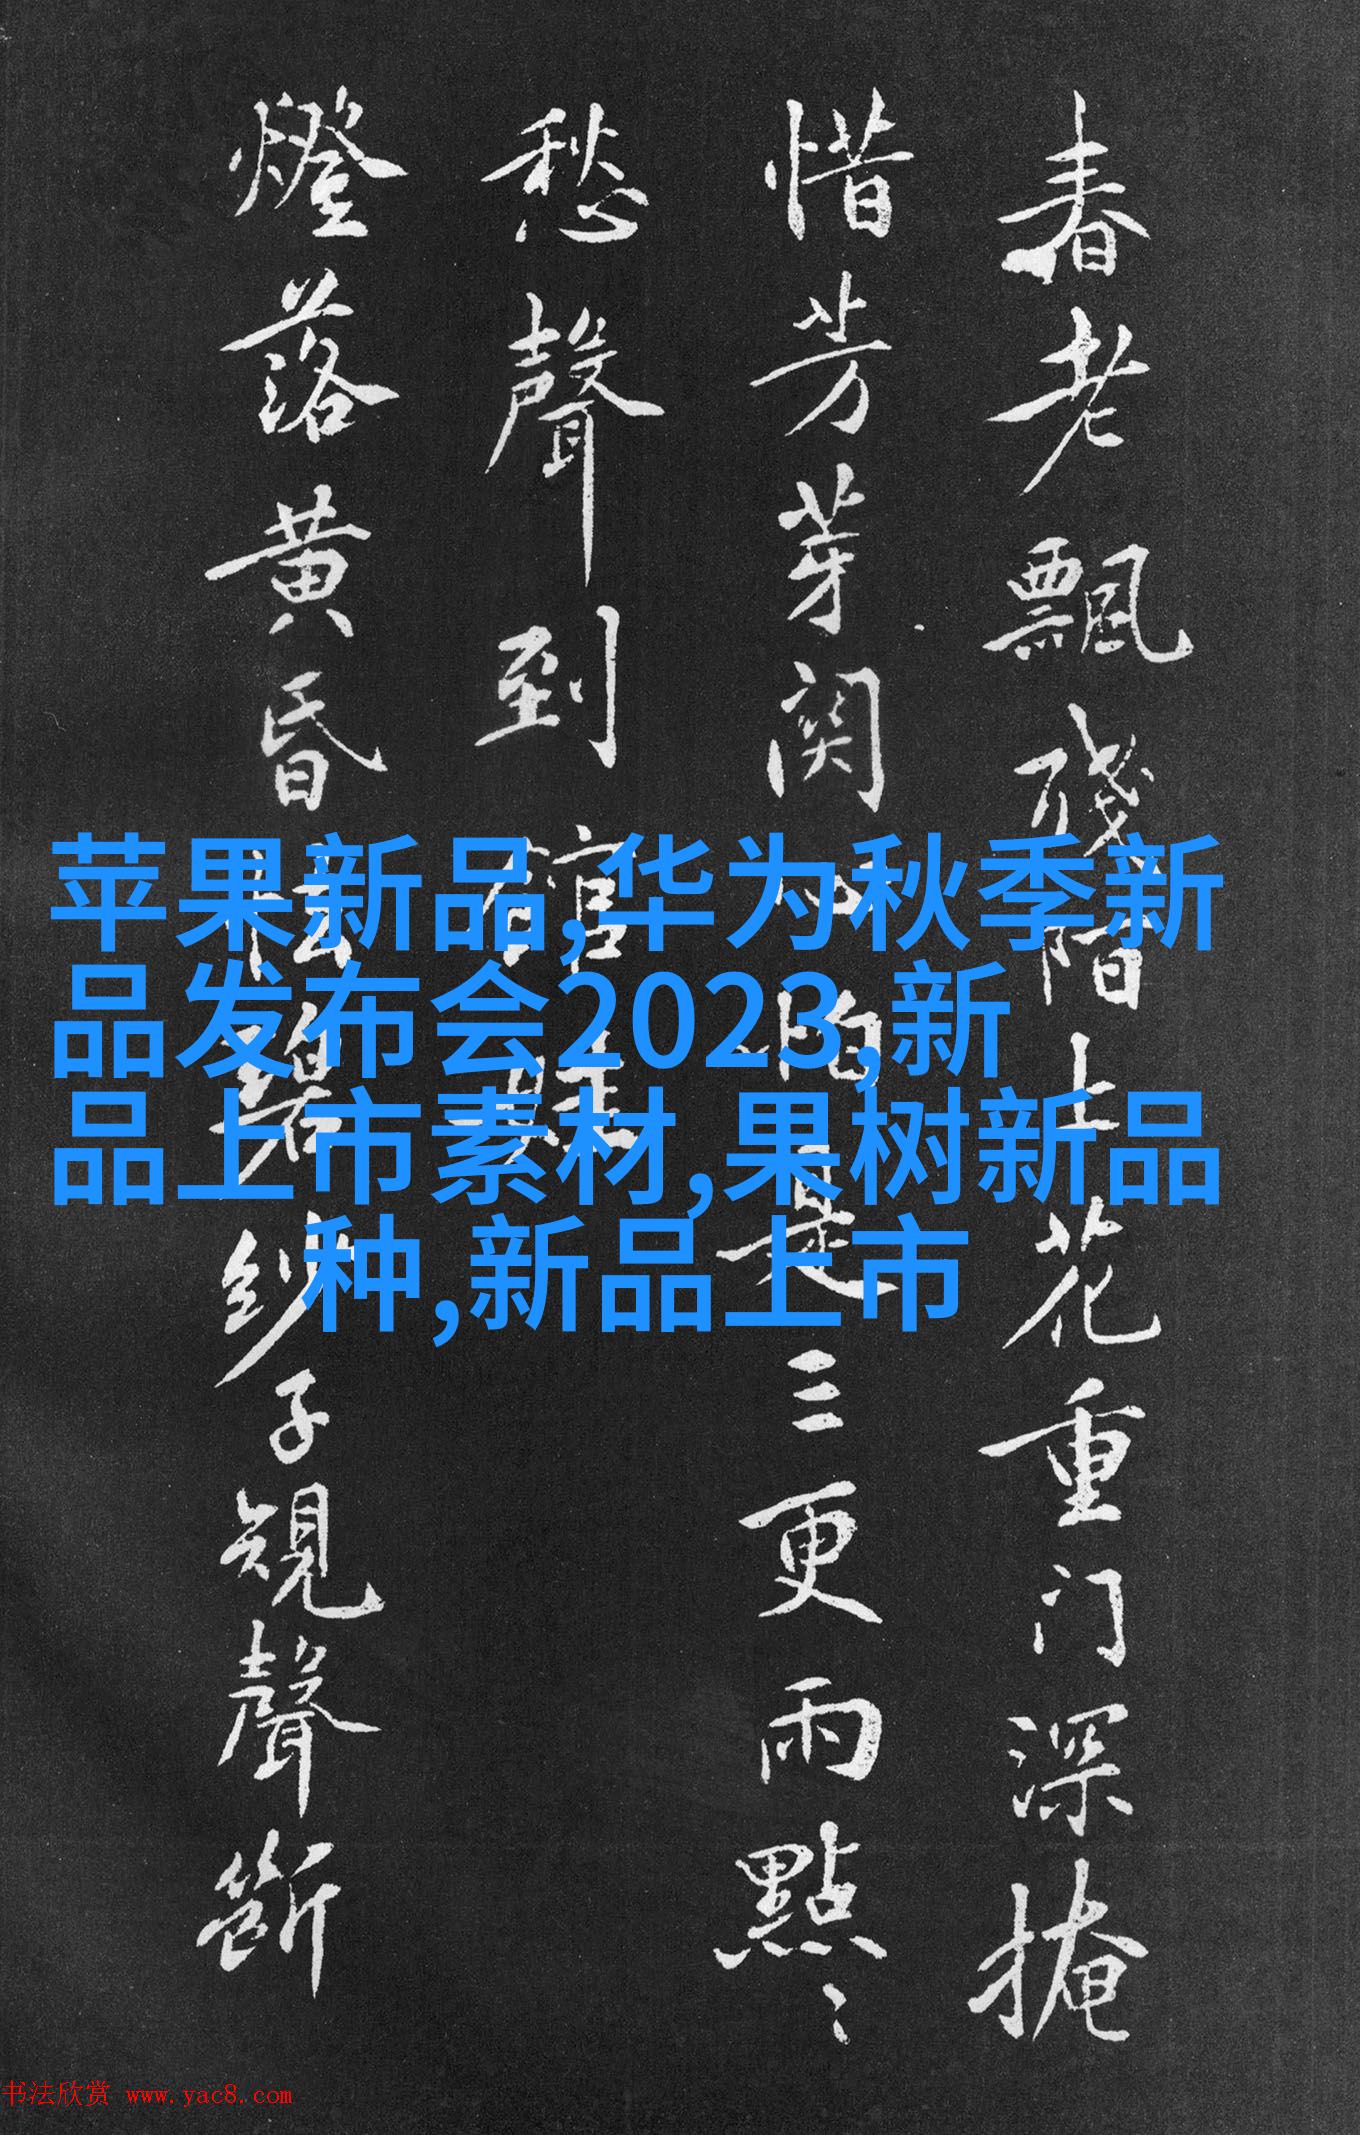 春老飄殘階上花重门深掩
惜芳芽関心怕是三更雨點〻
愁聲到
燈落黄昏 碧紗子規聲斷
苹果新品,华为秋季新
品发布会2023,新
品上市素材,果树新品
种,新品上市
书法欣赏 www.yac8.com